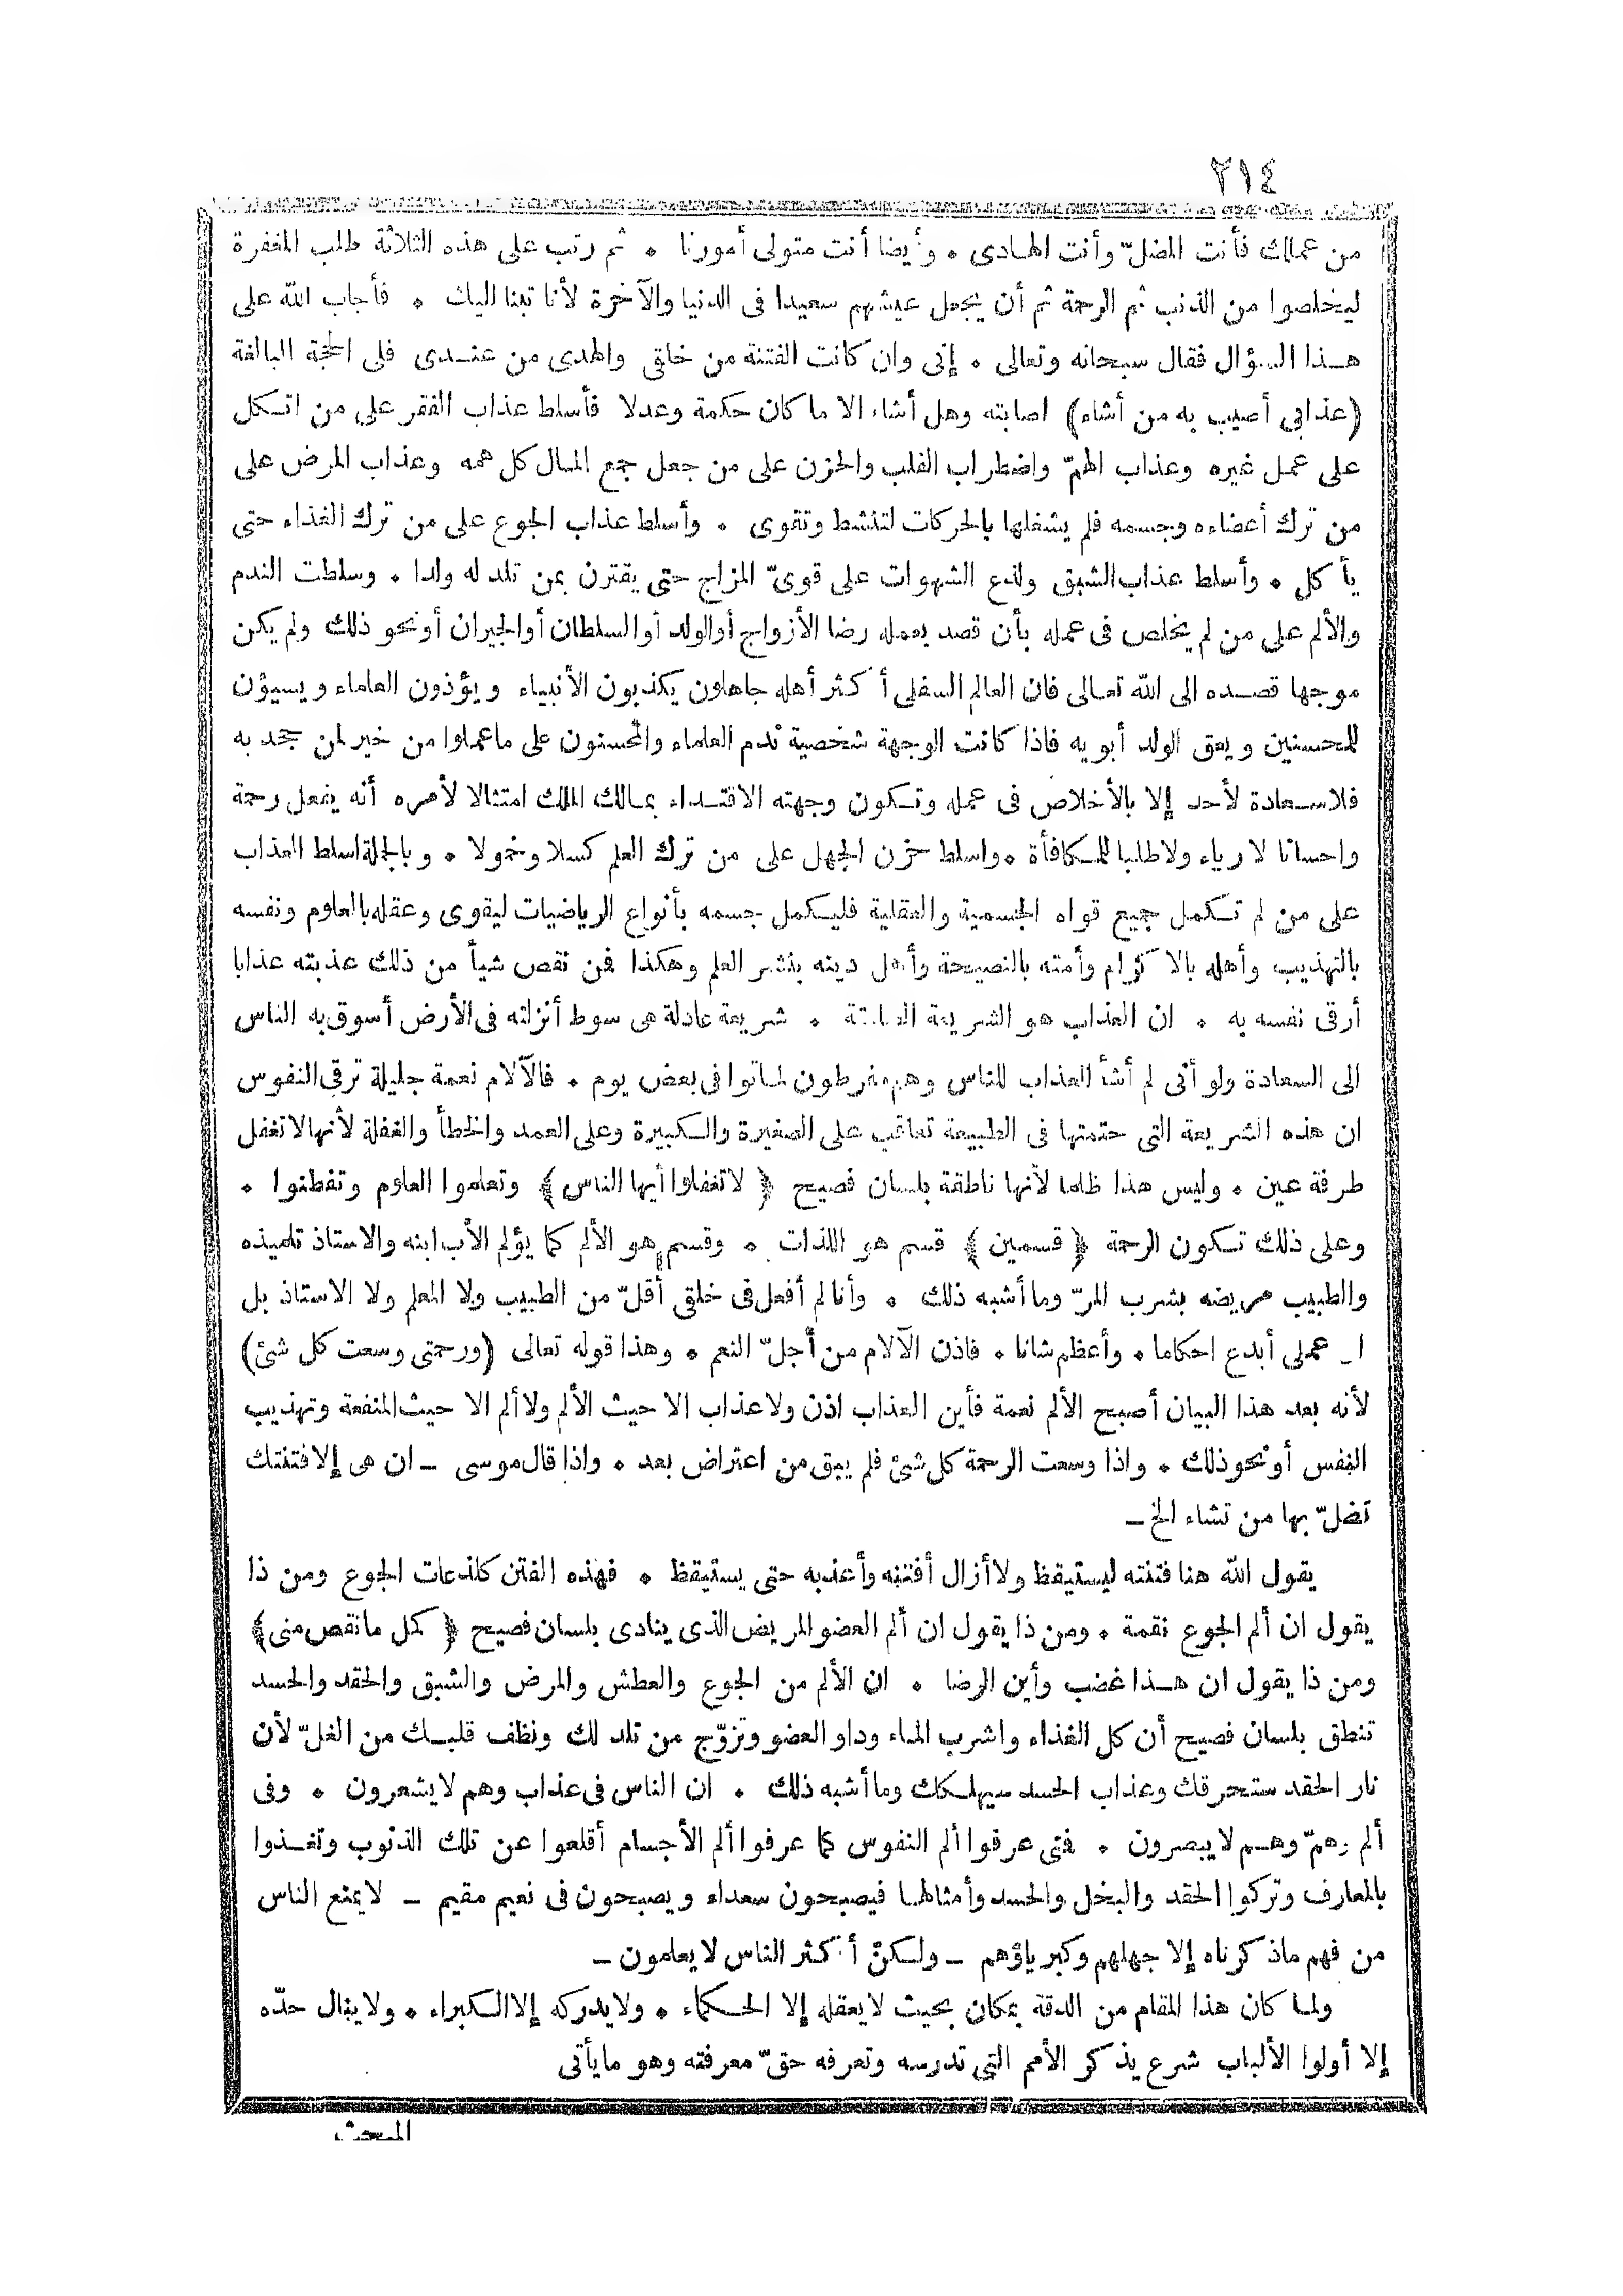 ٢١٤
من عملك فأنت المضلّ وأنت الهادى . وأيضا أنت متولى أمورنا . ثم رتب على هذه الثلاثة طلب المغفرة
ليخلصوا من الذنب ثم الرحمة ثم أن يجعل عيشهم سعيدا فى الدنيا والآخرة لأنا تبنا اليك . فأجاب الله على
هذا السؤال فقال سبحانه وتعالى . إنى وان كانت الفتنة من خلقى والهدى من عندى فلى الحجة البالغة
(عذابى أصيب به من أشاء) اصابته وهل أشاء الا ما كان حكمة وعدلا فأسلط عذاب الفقر على من اتكل
على عمل غيره وعذاب الهمّ واضطراب القلب والحزن على من جعل جمع المال كل همه وعذاب المرض على
من ترك أعضاءه وجسمه فلم يشغلها بالحركات لتنشط وتقوى . وأسلط عذاب الجوع على من ترك الغذاء حتى
يأكل . وأسلط عذاب الشبق ولذع الشهوات على قوىّ المزاج حتى يقترن بمن تلد له ولدا . وسلطت الندم
والألم على من لم يخلص فى عمله بأن قصد بعمله رضا الأزواج أو الولد أو السلطان أو الجيران أو نحو ذلك ولم يكن
موجها قصده الى الله تعالى فان العالم السفلى أكثر أهله جاهلون يكذبون الأنبياء ويؤذون العلماء ويسيؤن
للمحسنين ويعق الولد أبويه فاذا كانت الوجهة شخصية ندم العلماء والمحسنون على ماعملوا من خير لمن جحد به
فلا سعادة لأحد إلا بالأخلاص فى عمله وتكون وجهته الاقتداء بمالك الملك امتثالا لأمره أنه يفعل رحمة
واحسانا لا رياء ولا طلبا للمكافأة . واسلط حزن الجهل على من ترك العلم كسلا وخمولا . وبالجملة اسلط العذاب
على من لم تكمل جميع قواه الجسمية والعقلية فليكمل جسمه بأنواع الرياضيات ليقوى وعقله بالعلوم ونفسه
بالتهذيب وأهله بالاكرام وأمته بالنصيحة وأهل دينه بنشر العلم وهكذا فمن نقص شيأ من ذلك عذبته عذابا
أرقى نفسه به . ان العذاب هو الشريعة . شريعة عادلة هى سوط أنزلته فى الأرض أسوق به الناس
الى السعادة ولو أنى لم أشأ العذاب للناس وهم مفرطون لماتوا فى بعض يوم . فالآلام نعمة جليلة ترقى النفوس
ان هذه الشريعة التى حتمتها فى الطبيعة تعاقب على الصغيرة والكبيرة وعلى العمد والخطأ والغفلة لأنها لا تغفل
طرفة عين . وليس هذا ظلما لأنها ناطقة بلسان فصيح ﴿ لا تغفلوا أيها الناس ﴾ وتعلموا العلوم وتفطنوا .
وعلى ذلك تكون الرحمة ﴿ قسمين ﴾ قسم هو اللذات . وقسم هو الألم كما يؤلم الأب ابنه والاستاذ تلميذه
والطبيب مريضه بشرب المرّ وما أشبه ذلك . وأنا لم أفعل فى خلقى أقلّ من الطبيب ولا المعلم ولا الاستاذ بل
عملى أبدع احكاما . وأعظم شانا . فاذن الآلام من أجلّ النعم . وهذا قوله تعالى (ورحمتى وسعت كل شئ)
لأنه بعد هذا البيان أصبح الألم نعمة فأين العذاب اذن ولا عذاب الا حيث الألم ولا ألم الا حيث المنفعة وتهذيب
النفس أو نحو ذلك . واذا وسعت الرحمة كل شئ فلم يبق من اعتراض بعد . واذا قال موسى ـ ان هى إلا فتنتك
تضلّ بها من تشاء الخ ـ
يقول الله هنا فتنته ليستيقظ ولا أزال أفتنه وأعذبه حتى يستيقظ . فهذه الفتن كلذعات الجوع ومن ذا
يقول ان ألم الجوع نقمة . ومن ذا يقول ان ألم العضو المريض الذى ينادى بلسان فصيح ﴿ كمل ما نقص منى ﴾
ومن ذا يقول ان هذا غضب وأين الرضا . ان الألم من الجوع والعطش والمرض والشبق والحقد والحسد
تنطق بلسان فصيح أن كل الغذاء واشرب الماء وداو العضو وتزوّج من تلد لك ونظف قلبك من الغلّ لأن
نار الحقد ستحرقك وعذاب الحسد سيهلكك وما أشبه ذلك . ان الناس فى عذاب وهم لا يشعرون . وفى
ألم وهمّ وهم لا يبصرون . فمتى عرفوا ألم النفوس كما عرفوا ألم الأجسام أقلعوا عن تلك الذنوب وتغذوا
بالمعارف وتركوا الحقد والبخل والحسد وأمثالها فيصبحون سعداء ويصبحون فى نعيم مقيم ـ لا يمنع الناس
من فهم ماذكرناه إلا جهلهم وكبرياؤهم ـ ولكنّ أكثر الناس لا يعلمون ـ
ولما كان هذا المقام من الدقة بمكان بحيث لا يعقله إلا الحكماء . ولا يدركه إلا الكبراء . ولا ينال حدّه
إلا أولوا الألباب شرع يذكر الأمم التى تدرسه وتعرفه حقّ معرفته وهو ما يأتى
المبحث